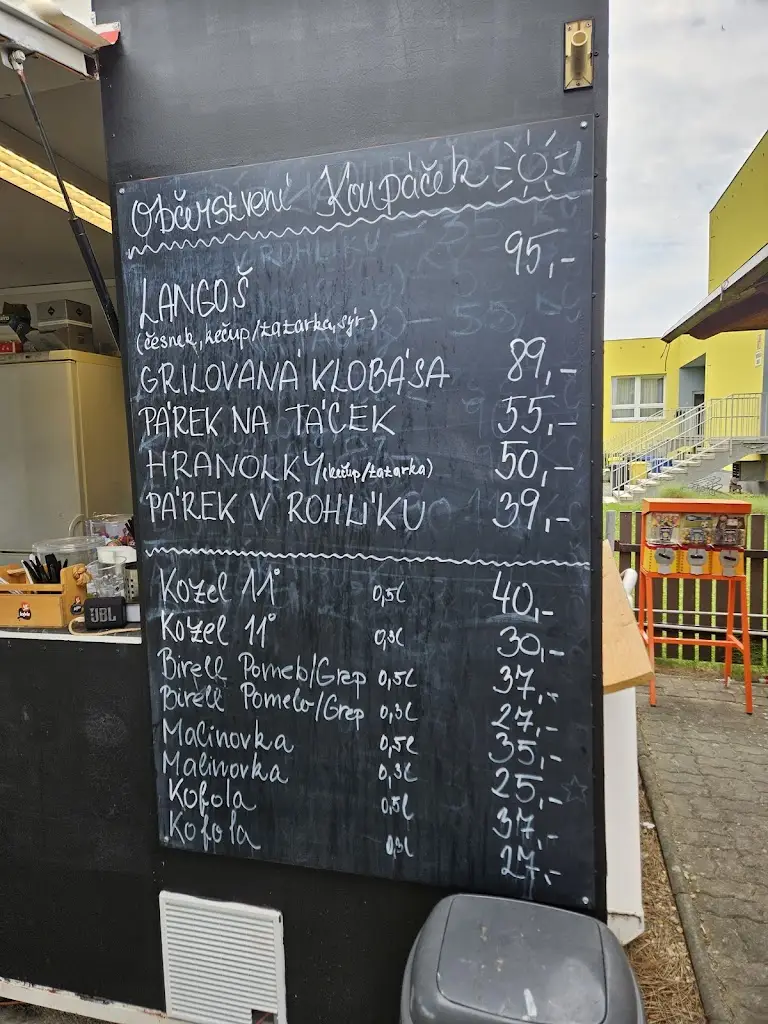 Občerstvení Koupáček
V ROHLÍKU
LANGOŠ 95,-
(česnek, kečup/tatarka, sýr)
GRILOVANÁ KLOBÁSA 89,-
PÁREK NA TÁCEK 55,-
HRANOLKY (kečup/tatarka) 50,-
PÁREK V ROHLÍKU 39,-
Kozel 11° 0,5l 40,-
Kozel 11° 0,3l 30,-
Birell Pomelo/Grep 0,5l 37,-
Birell Pomelo/Grep 0,3l 27,-
Malinovka 0,5l 35,-
Malinovka 0,3l 25,-
Kofola 0,5l 37,-
Kofola 0,3l 27,-
JBL